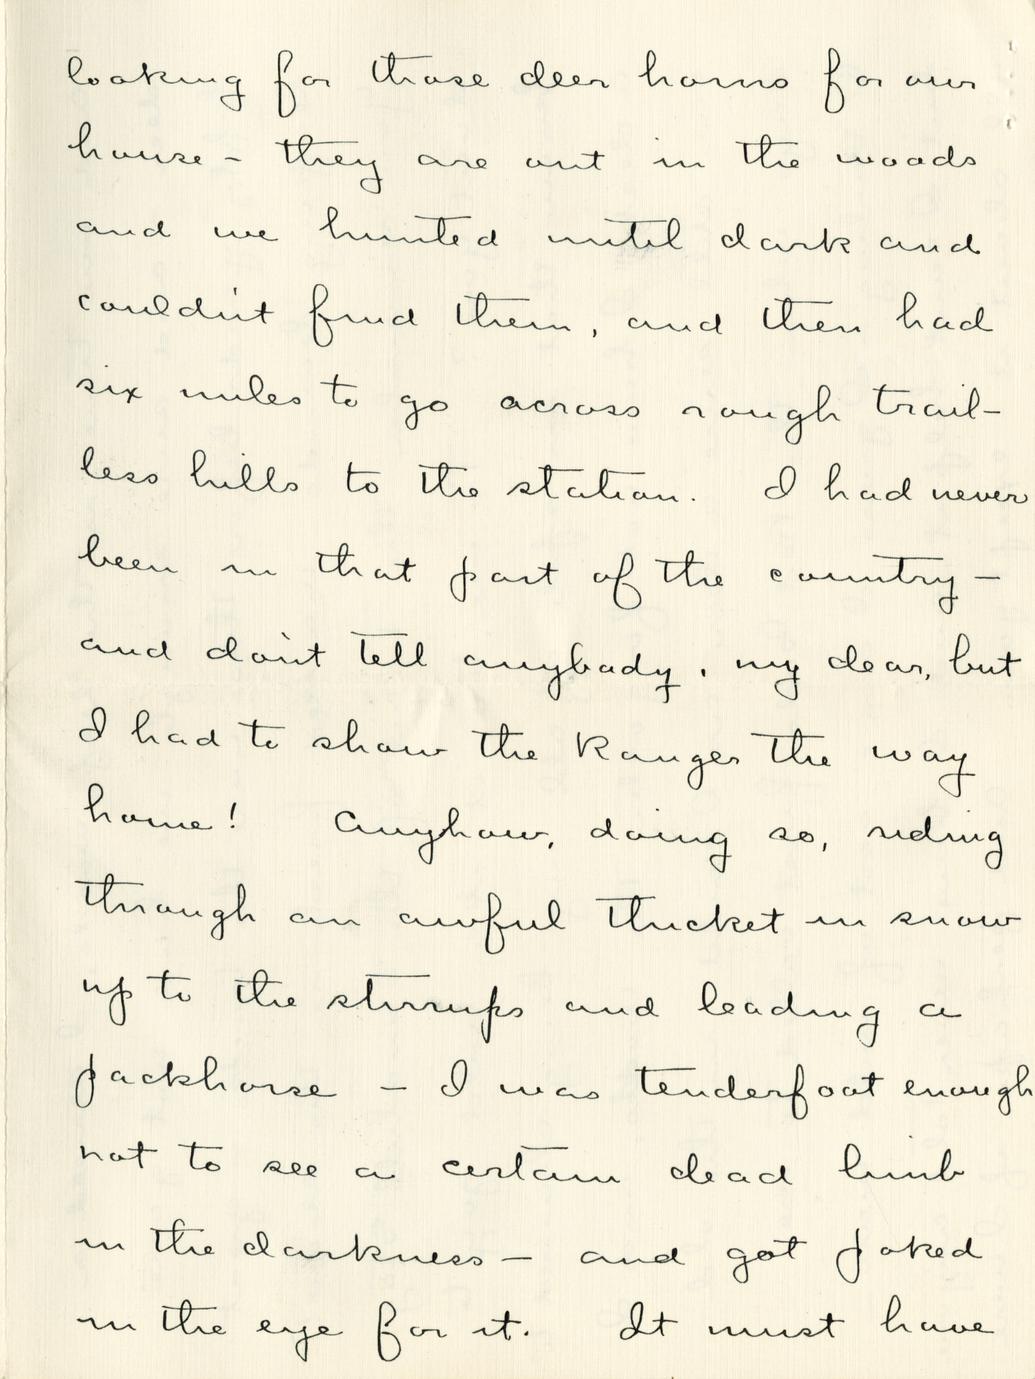 looking for those deer horns for our
house - they are out in the woods
and we hunted until dark and
couldn't find them, and then had
six miles to go across rough trail-
less hills to the station. I had never
been in that part of the country -
and don't tell anybody, my dear, but
I had to show the Ranger the way
home! Anyhow, doing so, riding
through an awful thicket in snow
up to the stirrups and leading a
packhorse - I was tenderfoot enough
not to see a certain dead limb
in the darkness - and got poked
in the eye for it. It must have